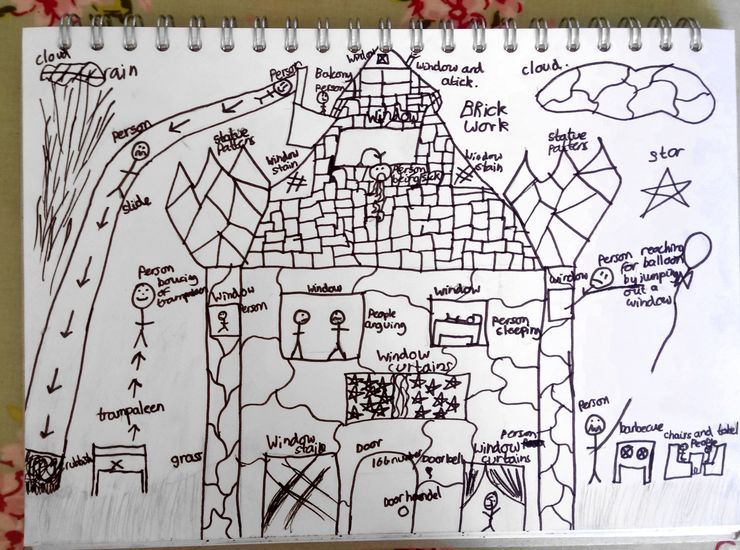 cloud
rain
Person
Balcony
person
window
window and
atick.
cloud.
Window
BRick
work
Person
statue
patters
window
stain
Person
being sick
Window
stain
statue
patters
star
slide
Person
boucing
of
trampaleen
Window
Person
window
People
arguing
window
Person
sleeping
window
Person reaching
for balloon
by jumping
out a
window
Window
curtains
trampaleen
Person
barbecue
chairs and tabel
People
rubbish
grass
Window
stain
Door
166
Doorbel
Door handel
Person
window
curtains